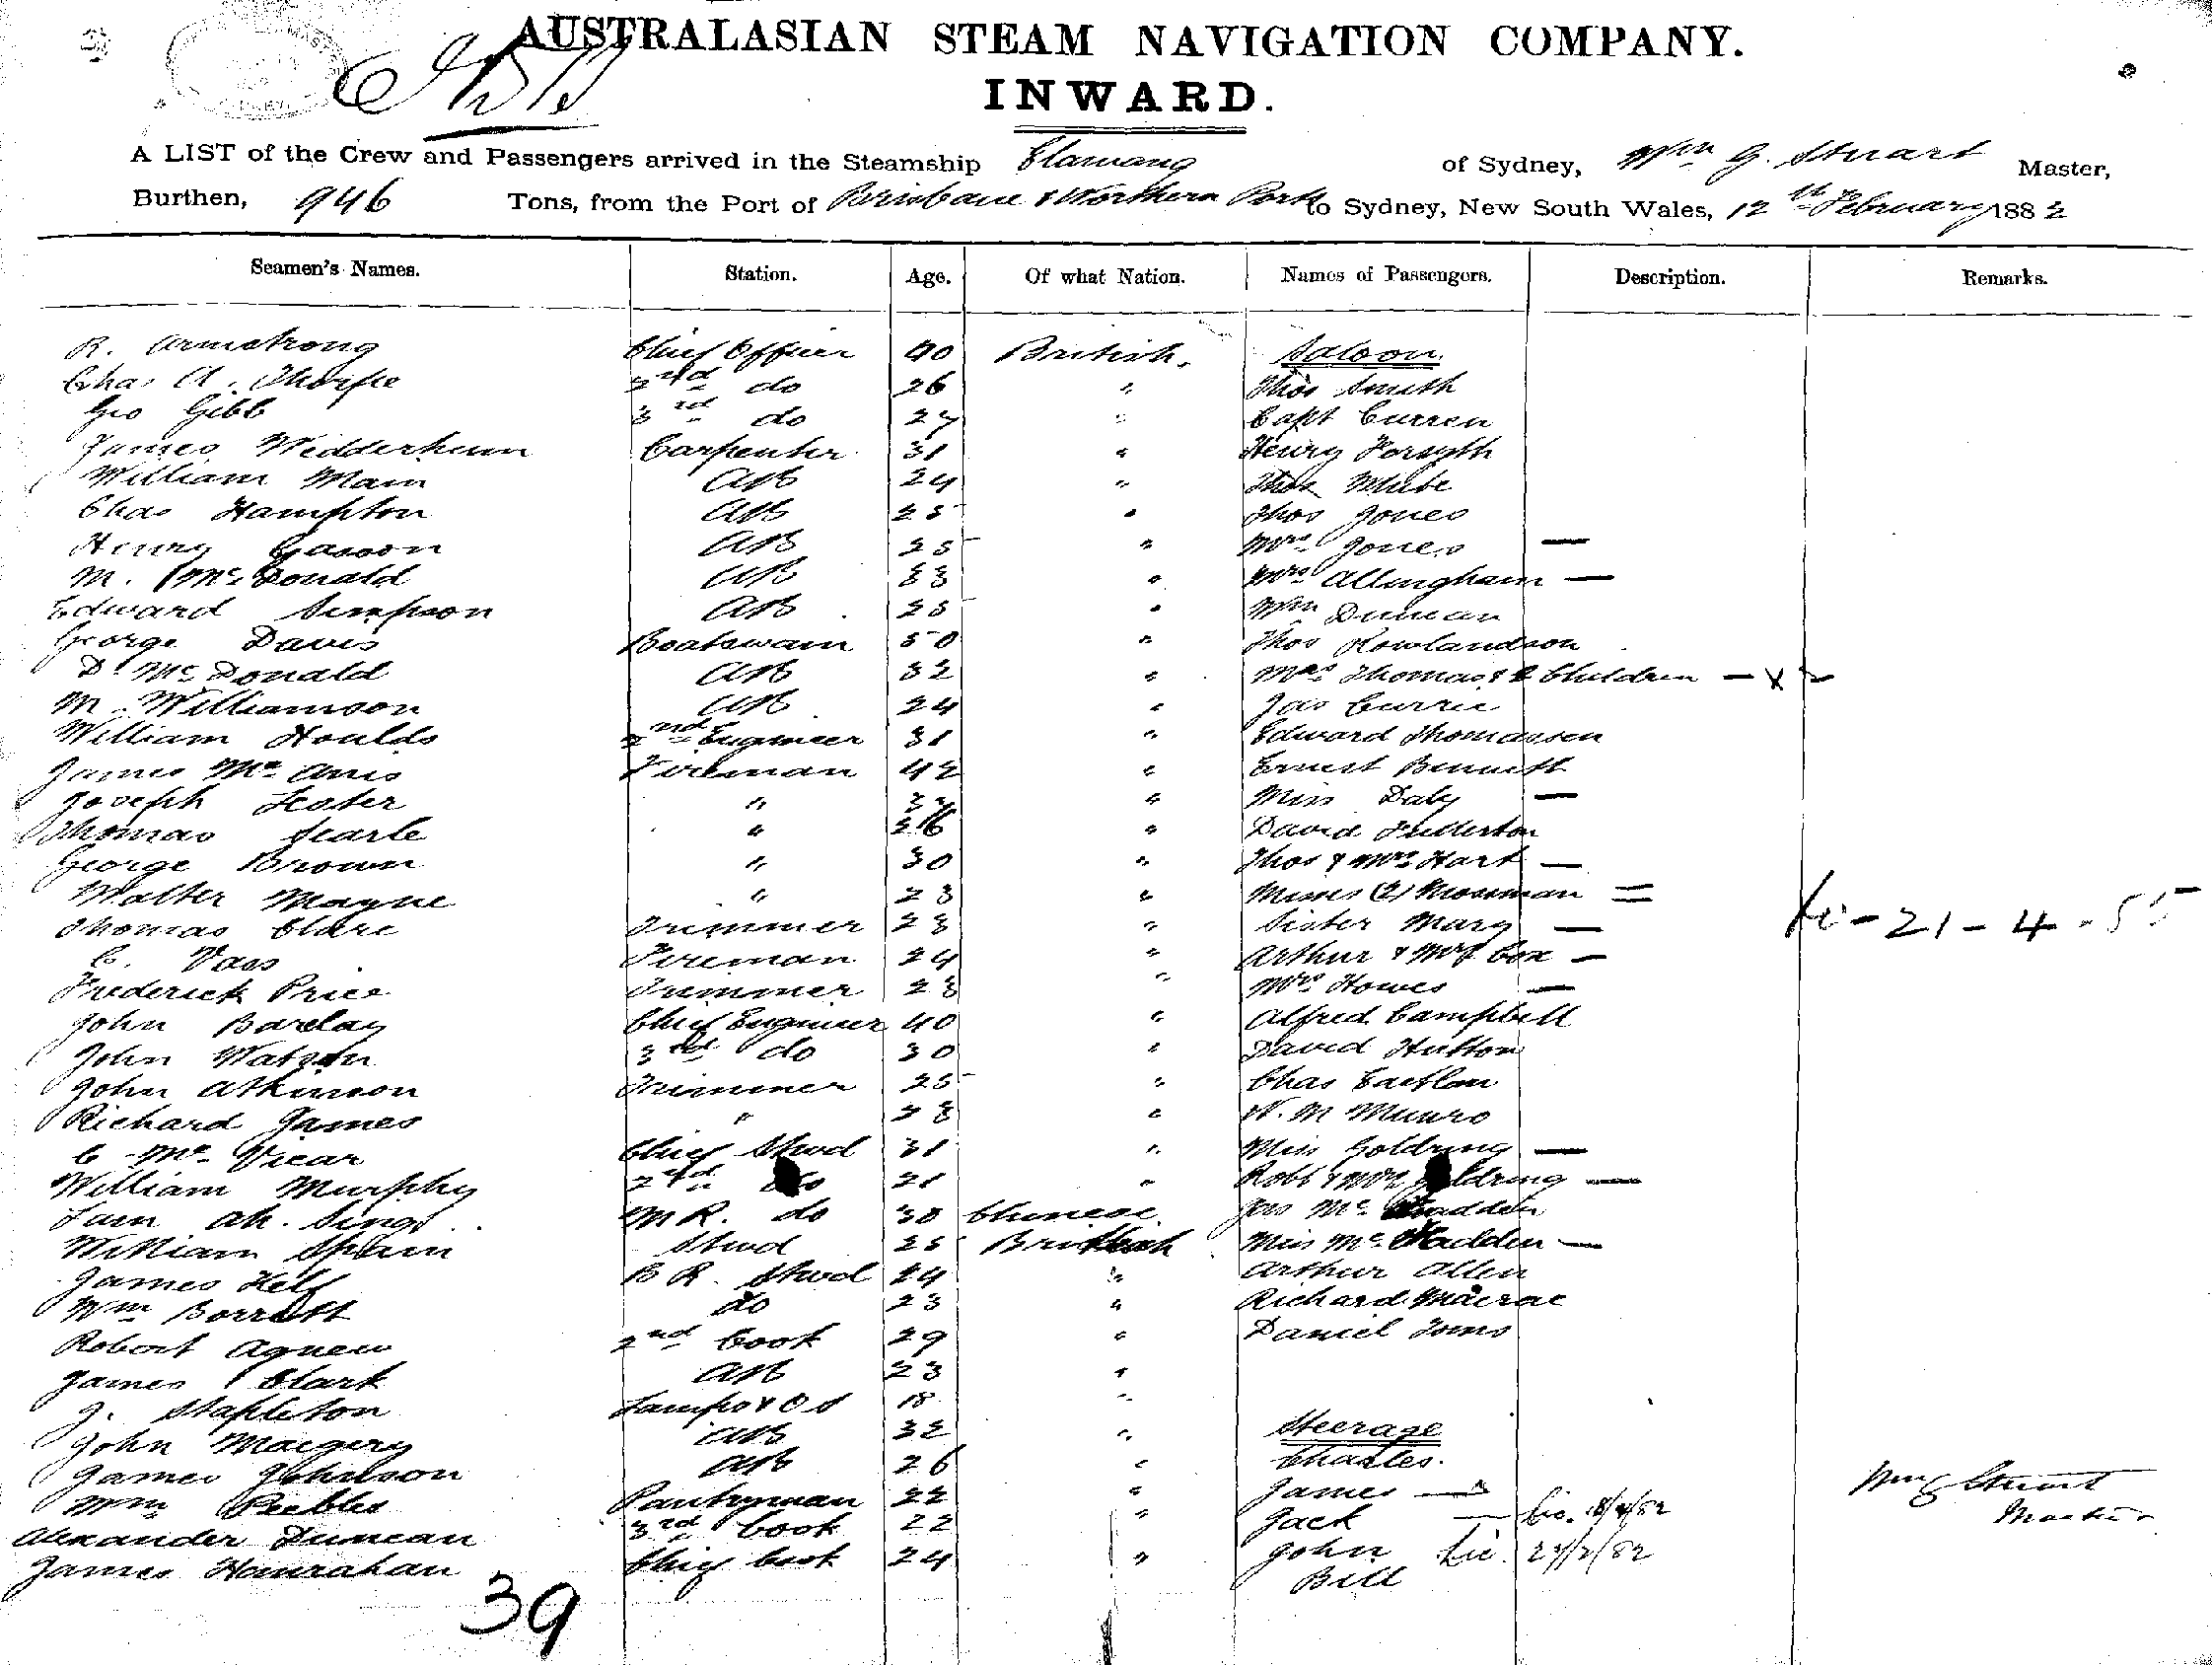 AUSTRALASIAN STEAM NAVIGATION COMPANY.
INWARD.
A LIST of the Crew and Passengers arrived in the Steamship Elamang of Sydney, Wm G. Stuart Master,
Burthen, 946 Tons, from the Port of Brisbane & Northern Ports to Sydney, New South Wales, 12th February 1882
Seamen's Names. Station. Age. Of what Nation. Names of Passengers. Description. Remarks.
R. Armstrong Chief Officer 40 British. Saloon
Chas A. Thorpe 2nd do 26 " Thos Smith
Geo Gibb 3rd do 27 " Capt Curren
James Wedderburn Carpenter 31 " Henry Forsyth
William Main AB 24 " Thos White
Chas Hampton AB 25 " Thos Jones
Henry Gasson AB 25 " Mrs Jones —
M. McDonald AB 33 " Mrs Allingham —
Edward Simpson AB 25 " Wm Duncan
George Davis Boatswain 50 " Thos Rowlandson
D. McDonald AB 32 " Mrs Thomas & 2 Children —
M. Williamson AB 24 " Jas Currie
William Houlds 2nd Engineer 31 " Edward Thomassen
James Mc Fireman 42 " Ernest Bennett
Joseph Lester " " Miss Daly —
Thomas Searle " 26 " David Fullerton
George Brown " 30 " Thos & Mrs Hart —
Walter Mayne " 23 " Misses (2) Mossman =
Thomas Clare Trimmer 23 " Sister Mary — 21 - 4 - 55
C. Vass Fireman 24 " Arthur & Mrs Cox —
Frederick Price Trimmer 23 " Mrs Howes —
John Barclay Chief Engineer 40 " Alfred Campbell
John Watson 3rd do 30 " David Hutton
John Atkinson Trimmer 25 " Chas
Richard James " 23 " N. M Munro
C McVicar Chief Stwd 31 " Miss Goldring —
William Murphy 2nd do 21 " Robt & Mrs Goldring —
Lam Ah. Sing M R. do 30 Chinese. Jas McFadden
William Spain Stwd 25 British Miss McFadden —
James Help B R. Stwd 24 " Arthur Allen
Wm Borrett do 23 " Richard Macrae
Robert Agnew 2nd Cook 29 " Daniel Toms
James Clark AB 23 "
J. Stapleton Lamps & OS 18 "
John Macgery AB 32 " Steerage
James Johnson AB 26 " Charles.
Wm Peebles Pantryman 22 " James —
Alexander Duncan 3rd Cook 22 " Jack —
James Hanrahan Chief Cook 24 " John
Bill
Wm G Stuart
Master
39